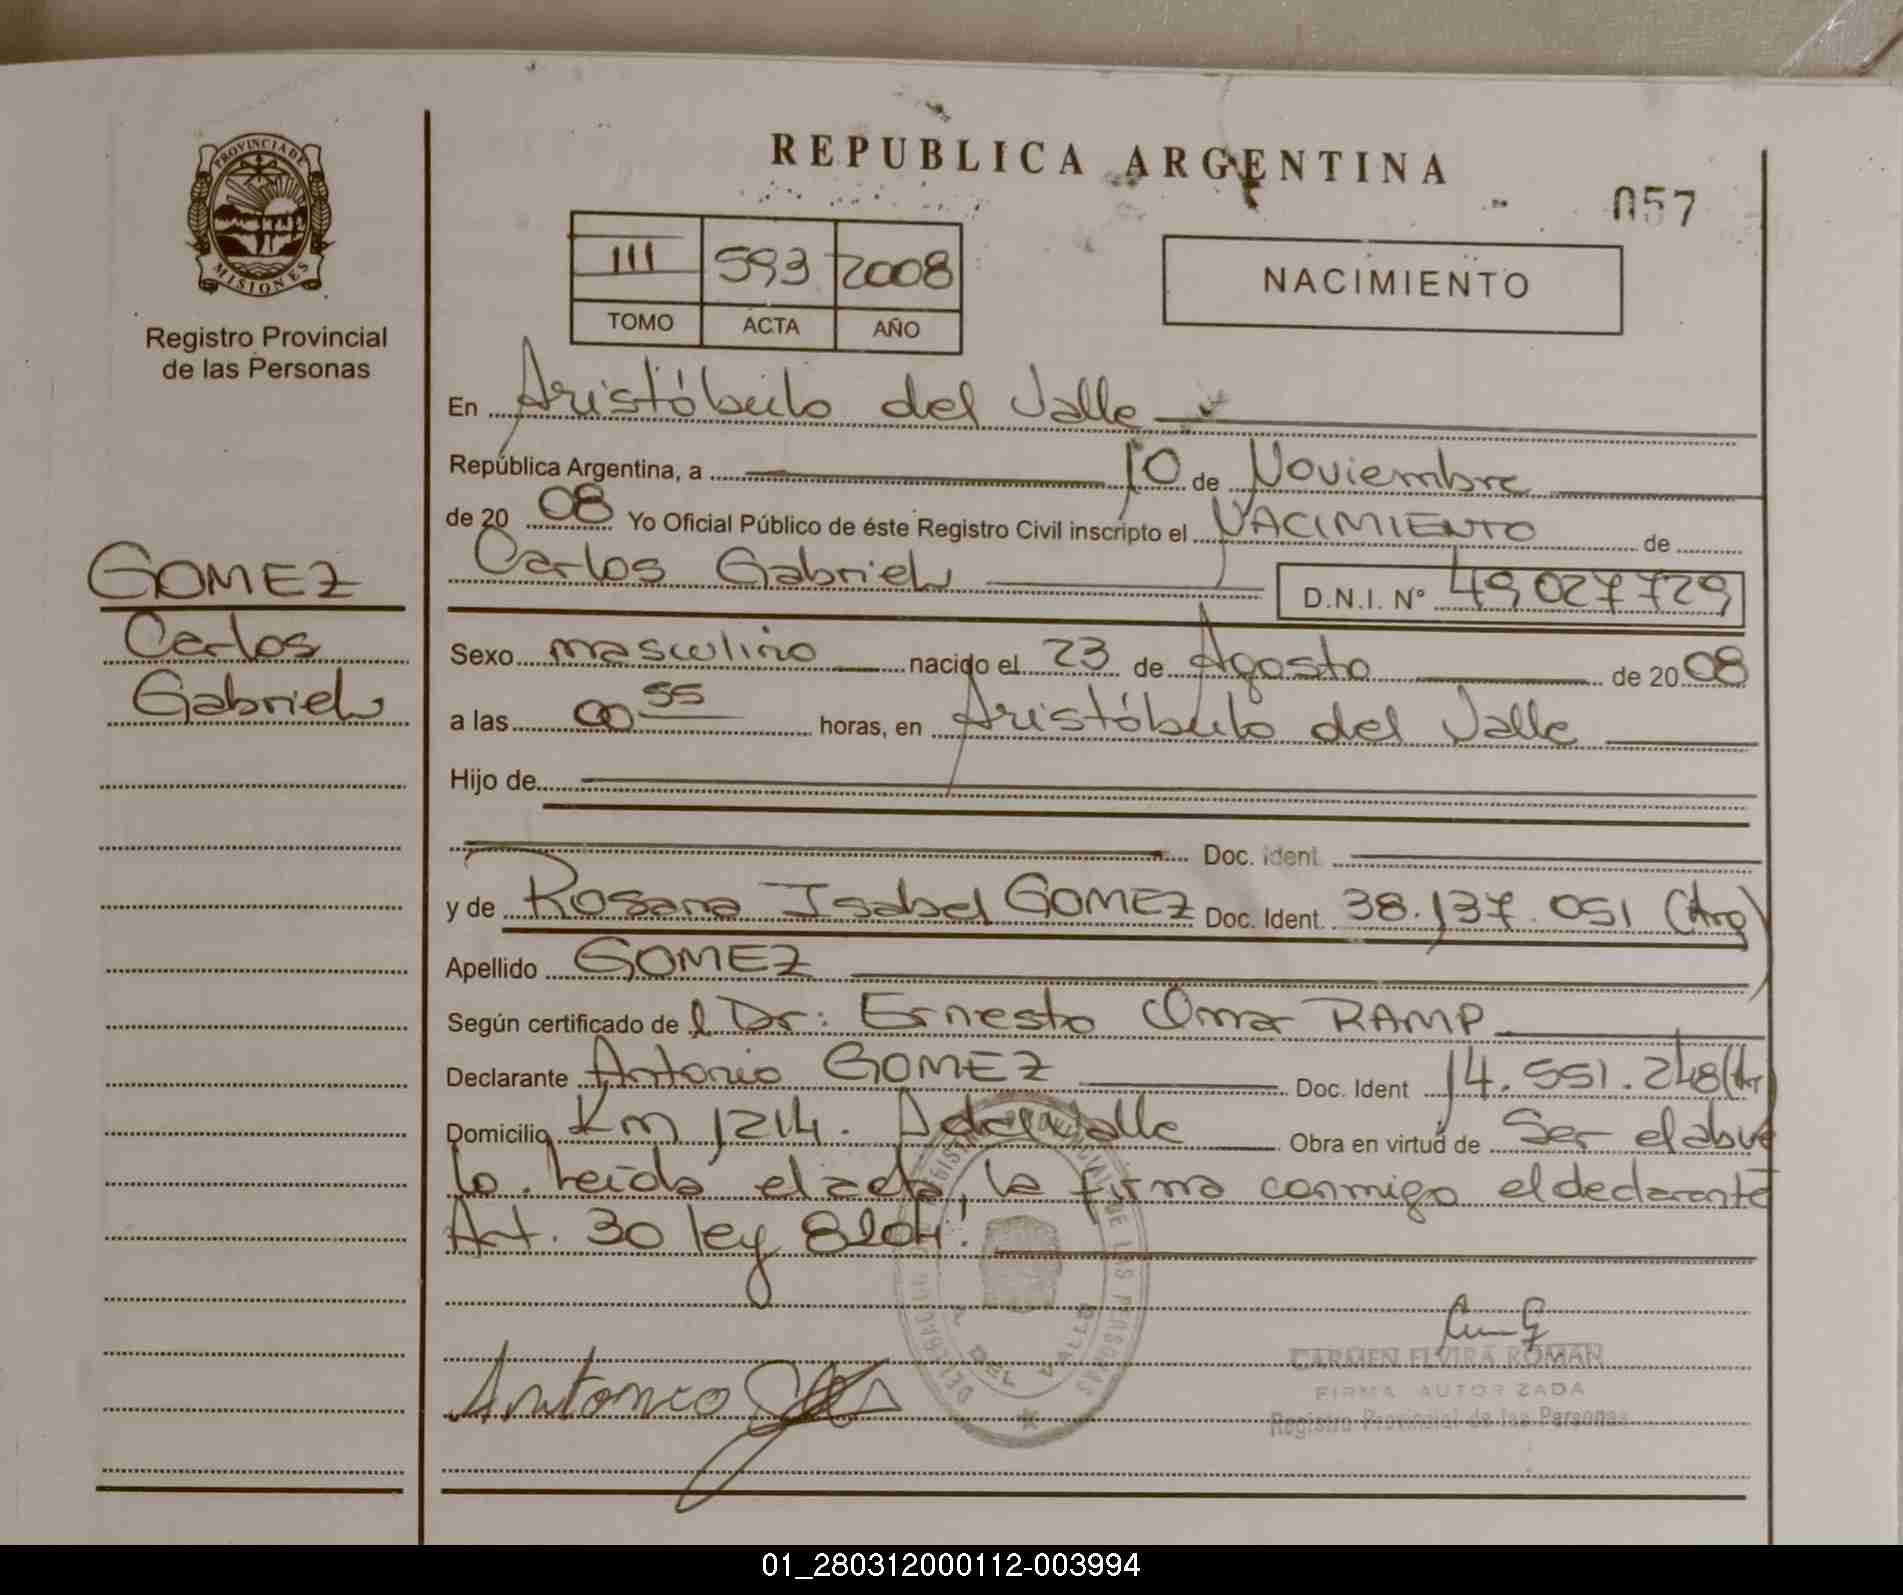 REPUBLICA ARGENTINA
057
PROVINCIA DE
MISIONES
Registro Provincial
de las Personas
III 593 2008
TOMO ACTA AÑO
NACIMIENTO
En Aristóbulo del Valle
República Argentina, a 10 de Noviembre
de 20 08 Yo Oficial Público de éste Registro Civil inscripto el NACIMIENTO de
Carlos Gabriel D.N.I. Nº 49027729
GOMEZ
Carlos
Gabriel
Sexo masculino nacido el 23 de Agosto de 20 08
a las 00 55 horas, en Aristóbulo del Valle
Hijo de
Doc. ident.
y de Rosana Isabel GOMEZ Doc. Ident. 38.137.051 (Arg)
Apellido GOMEZ
Según certificado de l Dr: Ernesto Omar RAMP
Declarante Antonio GOMEZ Doc. Ident 14.551.248 (Ar
Domicilio Km 1214. A del Valle Obra en virtud de Ser el abue
lo. Leída el acta, la firma conmigo el declarante
Art. 30 ley 8204!
Antonio
DEL VALLE
CARMEN ELVIRA ROMAN
FIRMA AUTORIZADA
Registro Provincial de las Personas
01_280312000112-003994